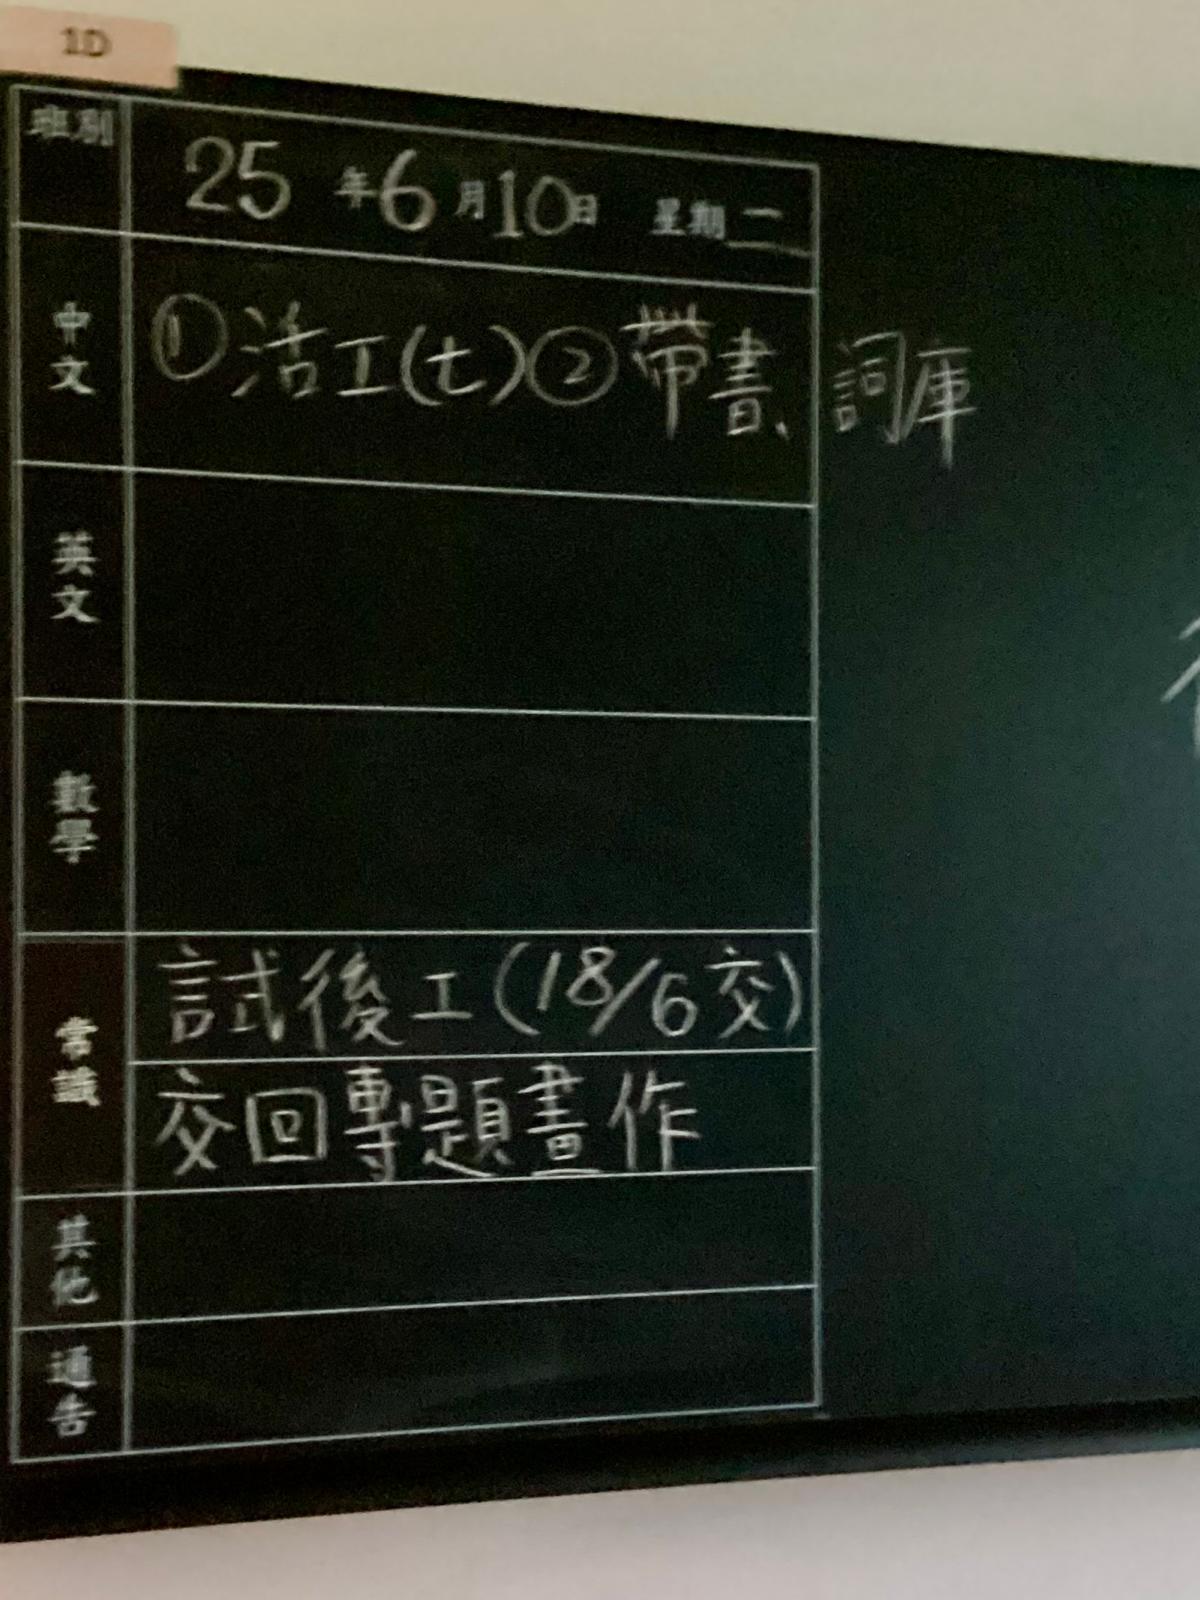 1D
班別
25年6月10日 星期二
中文
①活工(七)②帶書、詞庫
英文
數學
常識
試後工(18/6交)
交回專題畫作
其他
通告